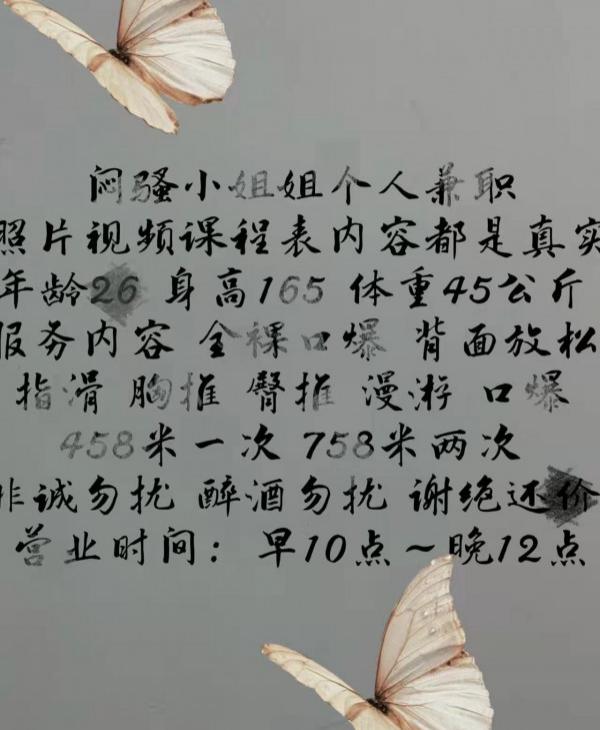 闷骚小姐姐个人兼职
照片视频课程表内容都是真实
年龄26 身高165 体重45公斤
服务内容 全裸口爆 背面放松
指滑 胸推 臀推 漫游 口爆
458米一次 758米两次
非诚勿扰 醉酒勿扰 谢绝还价
营业时间：早10点～晚12点